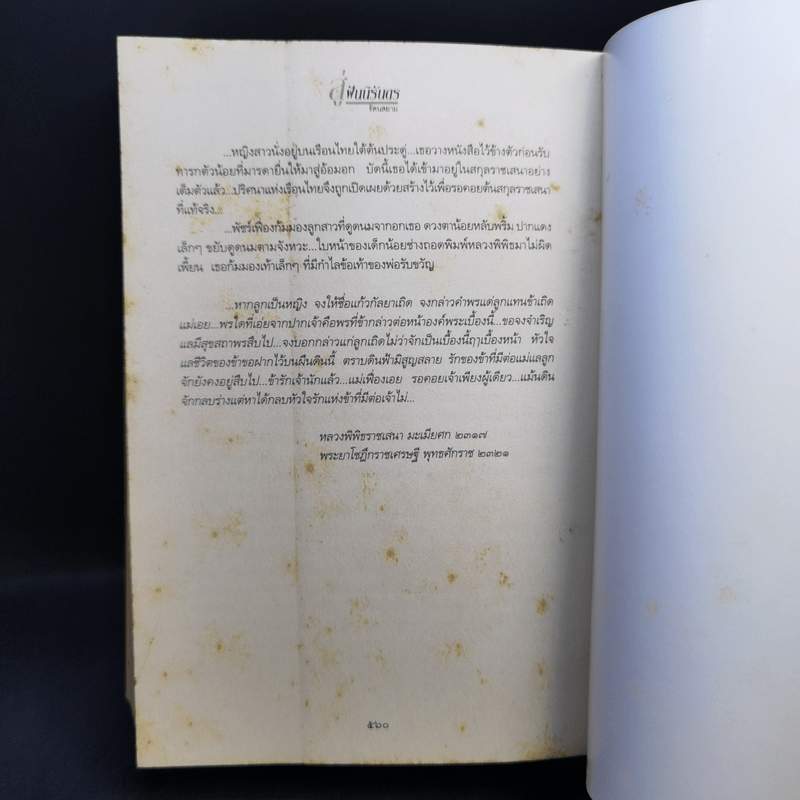 สู่ฝันนิรันดร
รัตนสยาม
...หญิงสาวนั่งอยู่บนเรือนไทยใต้ต้นประดู่...เธอวางหนังสือไว้ข้างตัวก่อนรับ
ทารกตัวน้อยที่มารดายื่นให้มาสู่อ้อมอก บัดนี้เธอได้เข้ามาอยู่ในสกุลราชเสนาอย่าง
เต็มตัวแล้ว...ปริศนาแห่งเรือนไทยจึงถูกเปิดเผยด้วยสร้างไว้เพื่อรอคอยต้นสกุลราชเสนา
ที่แท้จริง...
พัชร์เฟื่องก้มมองลูกสาวที่ดูดนมจากอกเธอ ดวงตาน้อยหลับพริ้ม ปากแดง
เล็กๆ ขยับดูดนมตามจังหวะ...ใบหน้าของเด็กน้อยช่างถอดพิมพ์หลวงพิพิธมาไม่ผิด
เพี้ยน เธอก้มมองเท้าเล็กๆ ที่มีกำไลข้อเท้าของพ่อรับขวัญ
...หากลูกเป็นหญิง จงให้ชื่อแก้วกัลยาเถิด จงกล่าวคำพรแด่ลูกแทนข้าเถิด
แม่เอย...พรใดที่เอ่ยจากปากเจ้าคือพรที่ข้ากล่าวต่อหน้าองค์พระเบื้องนี้...ขอจงจำเริญ
แลมีสุขสถาพรสืบไป...จงบอกกล่าวแก่ลูกเถิดไม่ว่าจักเป็นเบื้องนี้ฤๅเบื้องหน้า หัวใจ
แลชีวิตของข้าขอฝากไว้บนผืนดินนี้ ตราบดินฟ้ามิสูญสลาย รักของข้าที่มีต่อแม่แลลูก
จักยังคงอยู่สืบไป...ข้ารักเจ้านักแล้ว...แม่เฟื่องเอย รอคอยเจ้าเพียงผู้เดียว...แม้นดิน
จักกลบร่างแต่หาได้กลบหัวใจรักแห่งข้าที่มีต่อเจ้าไม่...
หลวงพิพิธราชเสนา มะเมียศก ๒๓๑๗
พระยาโชฎึกราชเศรษฐี พุทธศักราช ๒๓๒๑
๕๖๐